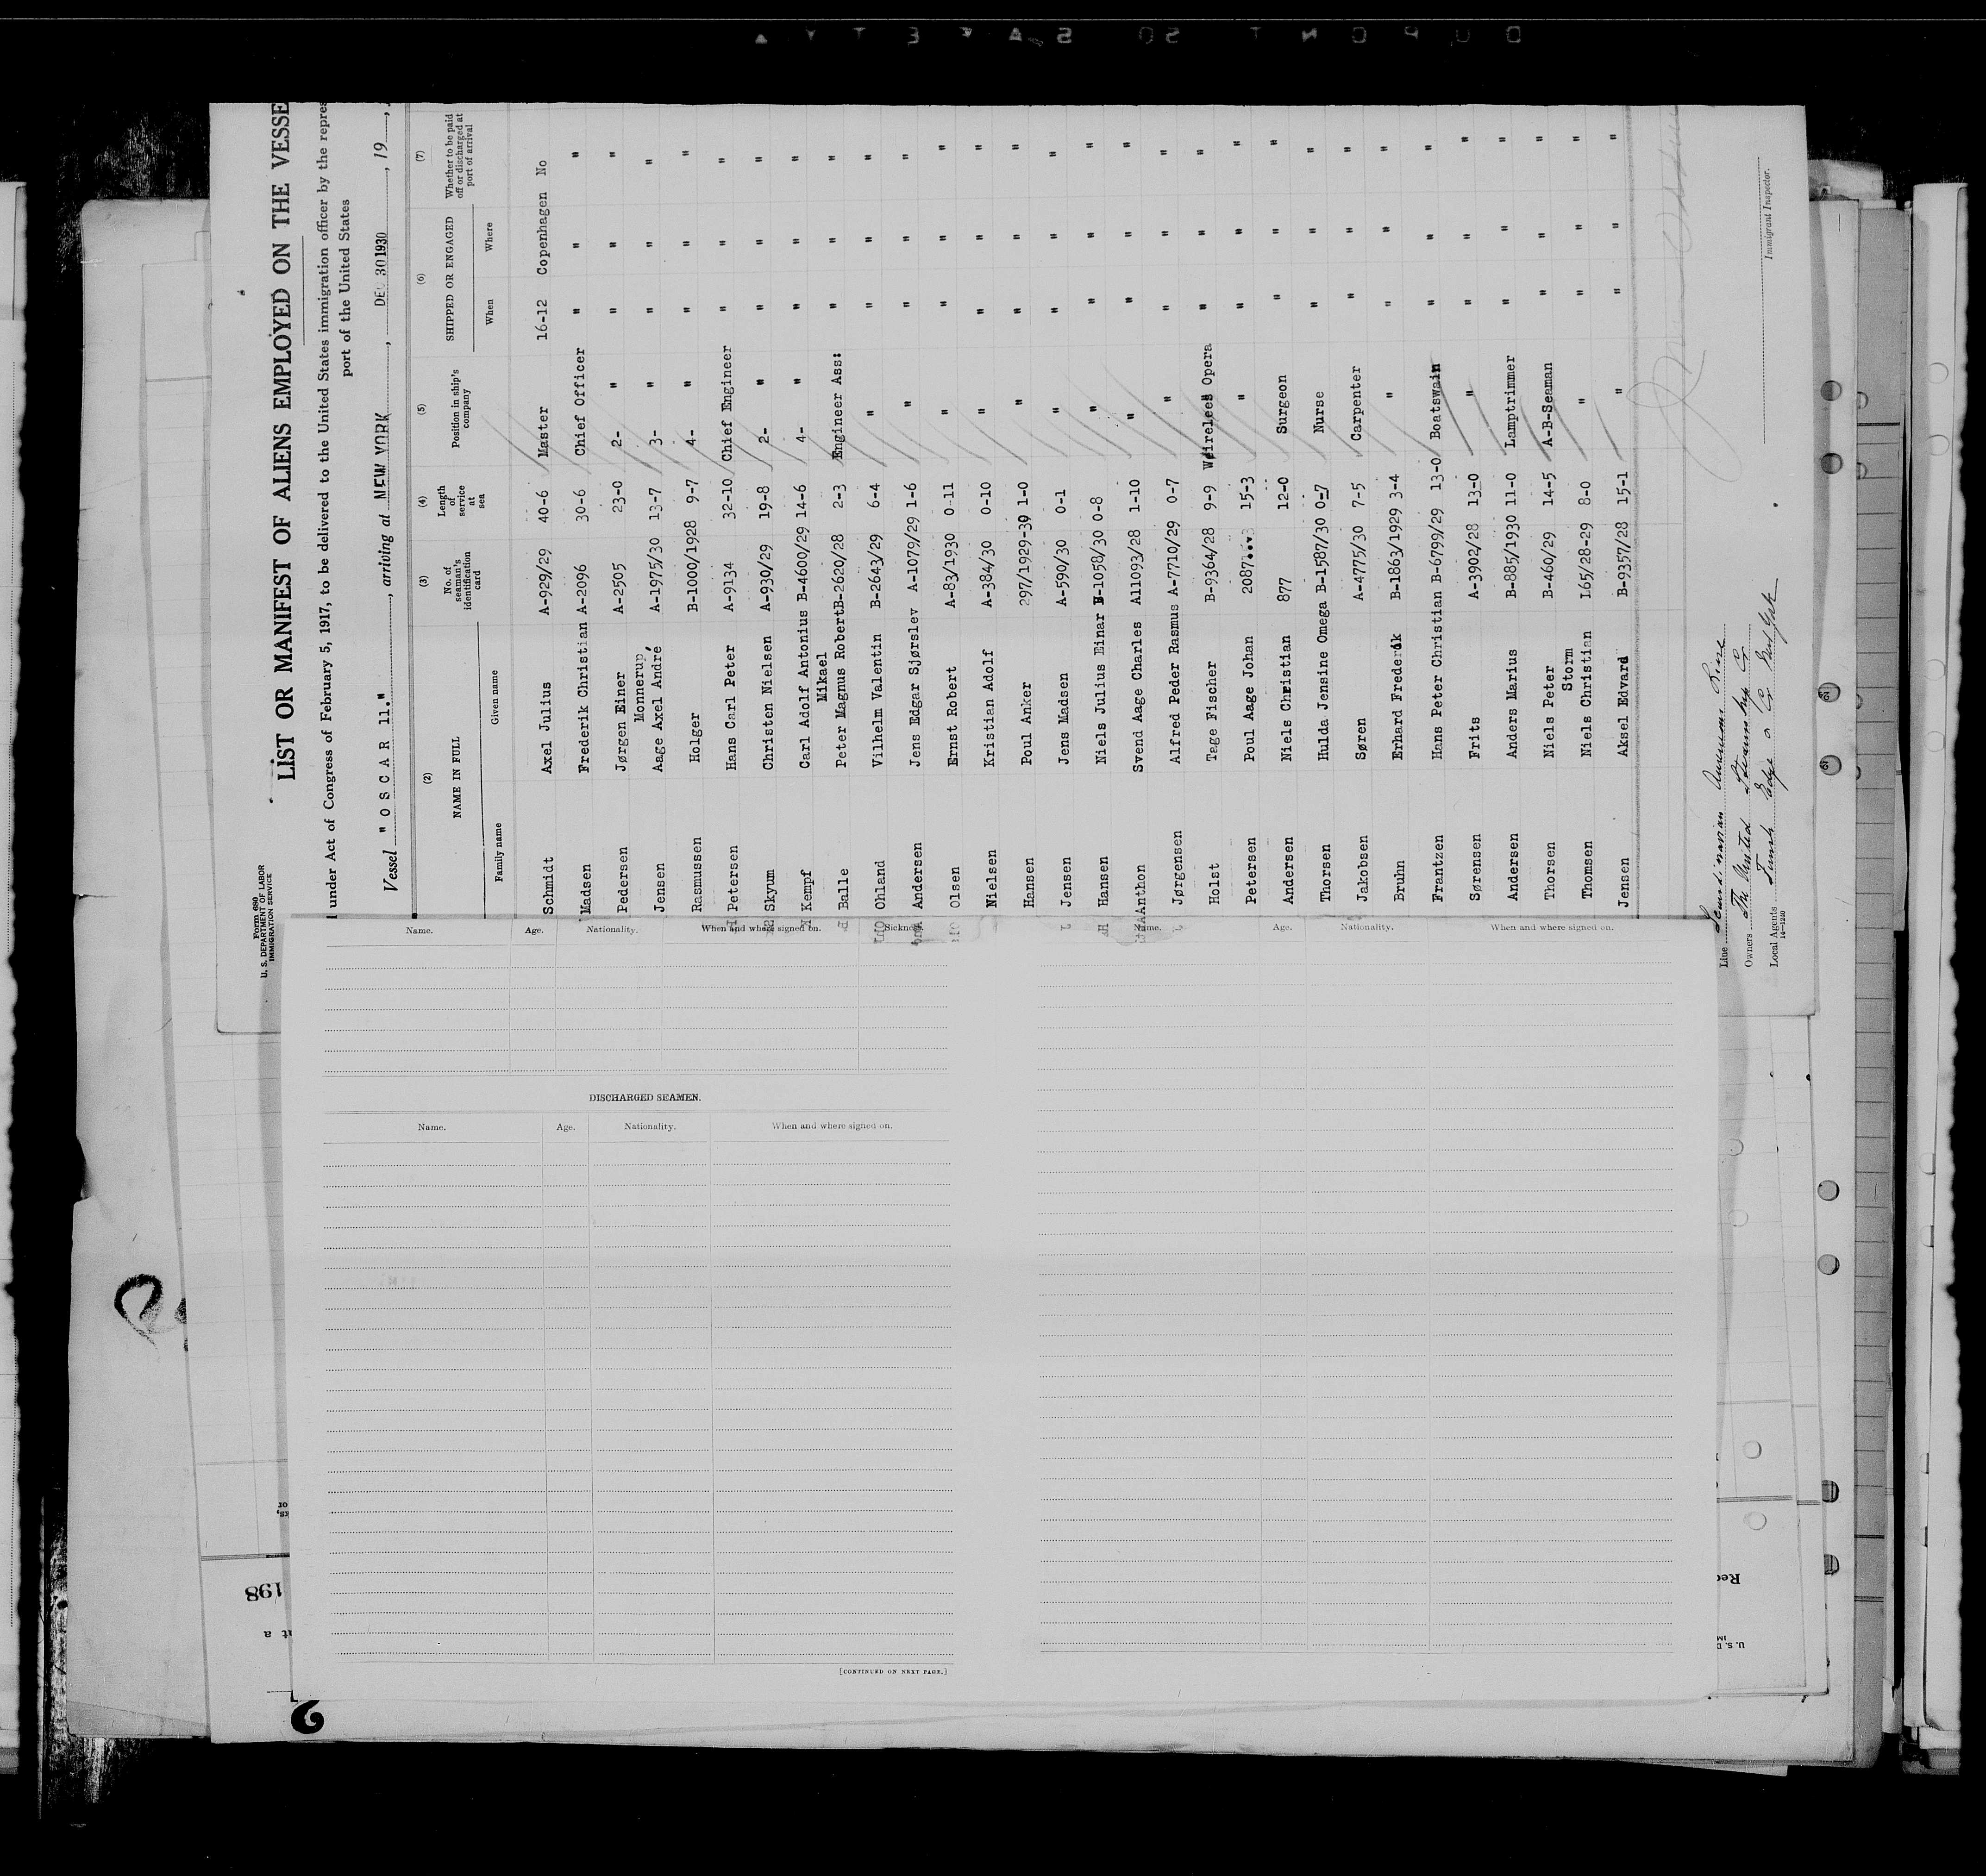 DU PONT SAFETY
Form 680
U. S. DEPARTMENT OF LABOR
IMMIGRATION SERVICE
LIST OR MANIFEST OF ALIENS EMPLOYED ON THE VESSE
under Act of Congress of February 5, 1917, to be delivered to the United States immigration officer by the repres
port of the United States
Vessel "OSCAR 11.", arriving at NEW YORK, DEC 30 1930, 19
(2) (3) (4) (5) (6) (7)
NAME IN FULL No. of seaman's identification card Length of service at sea Position in ship's company SHIPPED OR ENGAGED Whether to be paid off or discharged at port of arrival
Family name Given name When Where
Schmidt Axel Julius A-929/29 40-6 Master 16-12 Copenhagen No
Madsen Frederik Christian A-2096 30-6 Chief Officer " " "
Pedersen Jørgen Einer A-2505 23-0 2- " " " "
Monnerup
Jensen Aage Axel André A-1975/30 13-7 3- " " " "
Rasmussen Holger B-1000/1928 9-7 4- " " " "
Petersen Hans Carl Peter A-9134 32-10 Chief Engineer " " "
Skyum Christen Nielsen A-930/29 19-8 2- " " " "
Kempf Carl Adolf Antonius B-4600/29 14-6 4- " " " "
Mikael
Balle Peter Magnus Robert B-2620/28 2-3 Engineer Ass: " " "
Ohland Vilhelm Valentin B-2643/29 6-4 " " " "
Andersen Jens Edgar Sjørslev A-1079/29 1-6 " " " "
Olsen Ernst Robert A-83/1930 0-11 " " " "
Nielsen Kristian Adolf A-384/30 0-10 " " " "
Hansen Poul Anker 297/1929-30 1-0 " " " "
Jensen Jens Madsen A-590/30 0-1 " " " "
Hansen Niels Julius Einar B-1058/30 0-8 " " " "
Anthon Svend Aage Charles A11093/28 1-10 " " " "
Jørgensen Alfred Peder Rasmus A-7710/29 0-7 " " " "
Holst Tage Fischer B-9364/28 9-9 Weireless Opera " " "
Petersen Poul Aage Johan 2087 15-3 " " " "
Andersen Niels Christian 877 12-0 Surgeon " " "
Thorsen Hulda Jensine Omega B-1587/30 0-7 Nurse " " "
Jakobsen Søren A-4775/30 7-5 Carpenter " " "
Bruhn Erhard Frederik B-1863/1929 3-4 " " " "
Frantzen Hans Peter Christian B-6799/29 13-0 Boatswain " " "
Sørensen Frits A-3902/28 13-0 " " " "
Andersen Anders Marius B-885/1930 11-0 Lamptrimmer " " "
Thorsen Niels Peter B-460/29 14-5 A-B-Seeman " " "
Storm
Thomsen Niels Christian 165/28-29 8-0 " " " "
Jensen Aksel Edvard B-9357/28 15-1 " " " "
Line Scandinavian American Line
Owners The United Steamship Co
Local Agents Funch Edye & Co New York
14—1240
Immigrant Inspector.
Name. Age. Nationality. When and where signed on. Sickness.
DISCHARGED SEAMEN.
Name. Age. Nationality. When and where signed on.
[CONTINUED ON NEXT PAGE.]
Name. Age. Nationality. When and where signed on.
198
at a
Rec
U. S. D
IM